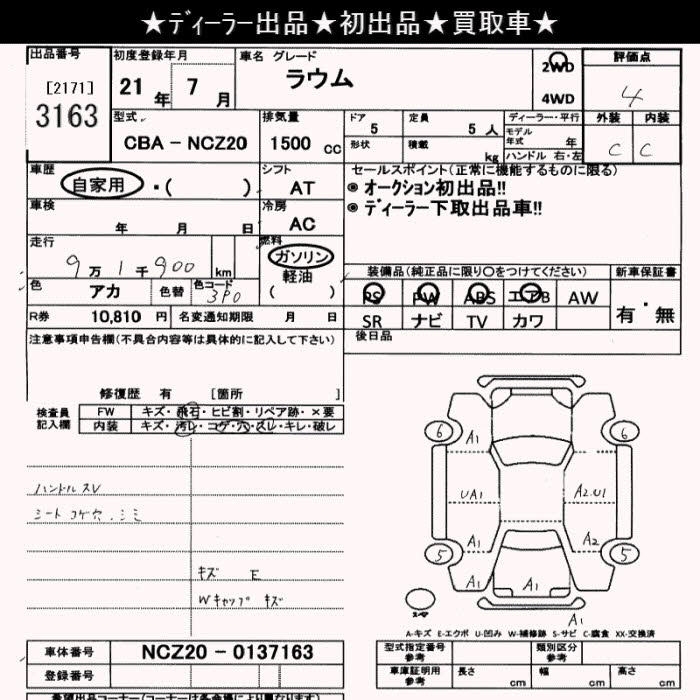 ★ディーラー出品★初出品★買取車★
出品番号 初度登録年月 車名 グレード 評価点
[2171] 21年 7月 ラウム 2WD 4
3163 4WD
型式 排気量 ドア 定員 ディーラー・平行 外装 内装
CBA - NCZ20 1500 cc 5 5人 モデル年式 年 C C
形状 積載 kg ハンドル 右・左
車歴 シフト セールスポイント(正常に機能するものに限る)
自家用 ・( ) AT ◉ オークション初出品!!
車検 冷房 ◉ ディーラー下取出品車!!
年 月 日 AC
走行 燃料
9万1千900 km ガソリン
軽油 装備品(純正品に限り○をつけてください) 新車保証書
色 アカ 色替 色コード 3P0 ( ) PS PW ABS エアB AW 有・無
R券 10,810 円 名変通知期限 月 日 SR ナビ TV カワ
注意事項申告欄(不具合内容等は具体的に記入して下さい) 後日品
修復歴 有 [箇所 ]
検査員 FW キズ・飛石・ヒビ割・リペア跡・×要
記入欄 内装 キズ・汚レ・コゲ・穴・スレ・キレ・破レ
6 A1 6
ハンドルスレ
UA1 A2.U1
シート コゲ穴.シミ
A2
5 A1 5
キズ E
A1 A1
Wキャップ キズ
スペア
A1
A-キズ E-エクボ U-凹み W-補修跡 S-サビ C-腐食 XX-交換済
車体番号 NCZ20 - 0137163 型式指定番号 参考 類別区分 参考
登録番号 車庫証明用 参考 長さ cm 幅 cm 高さ cm
希望出品コーナー(コーナーは各会場により異なります)